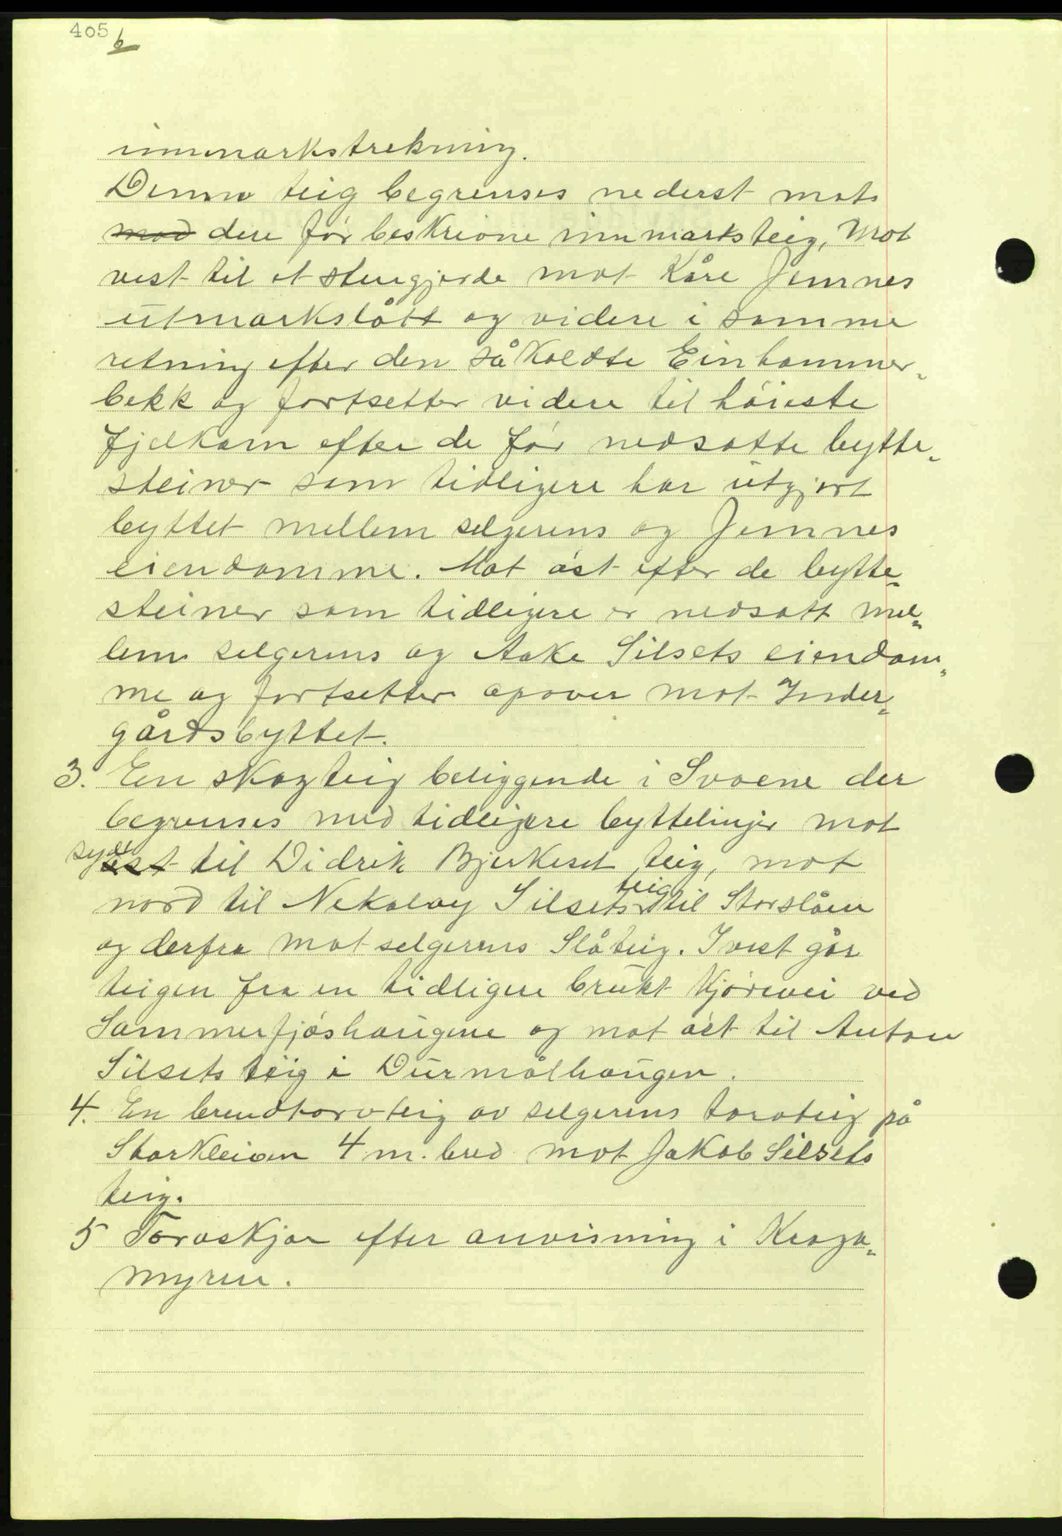 405 b
innmarkstrekning.
Denne teig begrenses nederst mots
mod den før beskrevne innmarksteig, Mot
vest til et stengjerde mot Kåre Jemnes
utmarkslått og videre i samme
retning efter den såkaldte Einhammer-
bekk og fortsetter videre til höieste
fjelkam efter de før nedsatte bytte-
steiner som tidligere har utgjort
byttet mellem selgerens og Jemnes
eiendomme. Mot øst efter de bytte-
steiner som tidligere er nedsatt mel-
lem selgerens og Aake Silsets eiendom-
me og fortsetter opover mot Inder-
gårdsbyttet.
3. En skogteig beliggende i Svaene der
begrenses med tidligere byttelinjer mot
syd øst til Didrik Bjerkeset teig, mot
nord til Nekolay Silsets teig til Storslåen
og derfra mot selgerens Slåteig. I vest går
teigen fra en tidligere brukt kjörevei ved
Sommerfjøshaugene og mot øst til Anton
Silsets teig i Durmålhaugen.
4. En brendtorvteig av selgerens torvteig på
Storkleiven 4 m. bred mot Jakob Silsets
teig.
5 Torvskjær efter anvisning i Kroga-
myren.